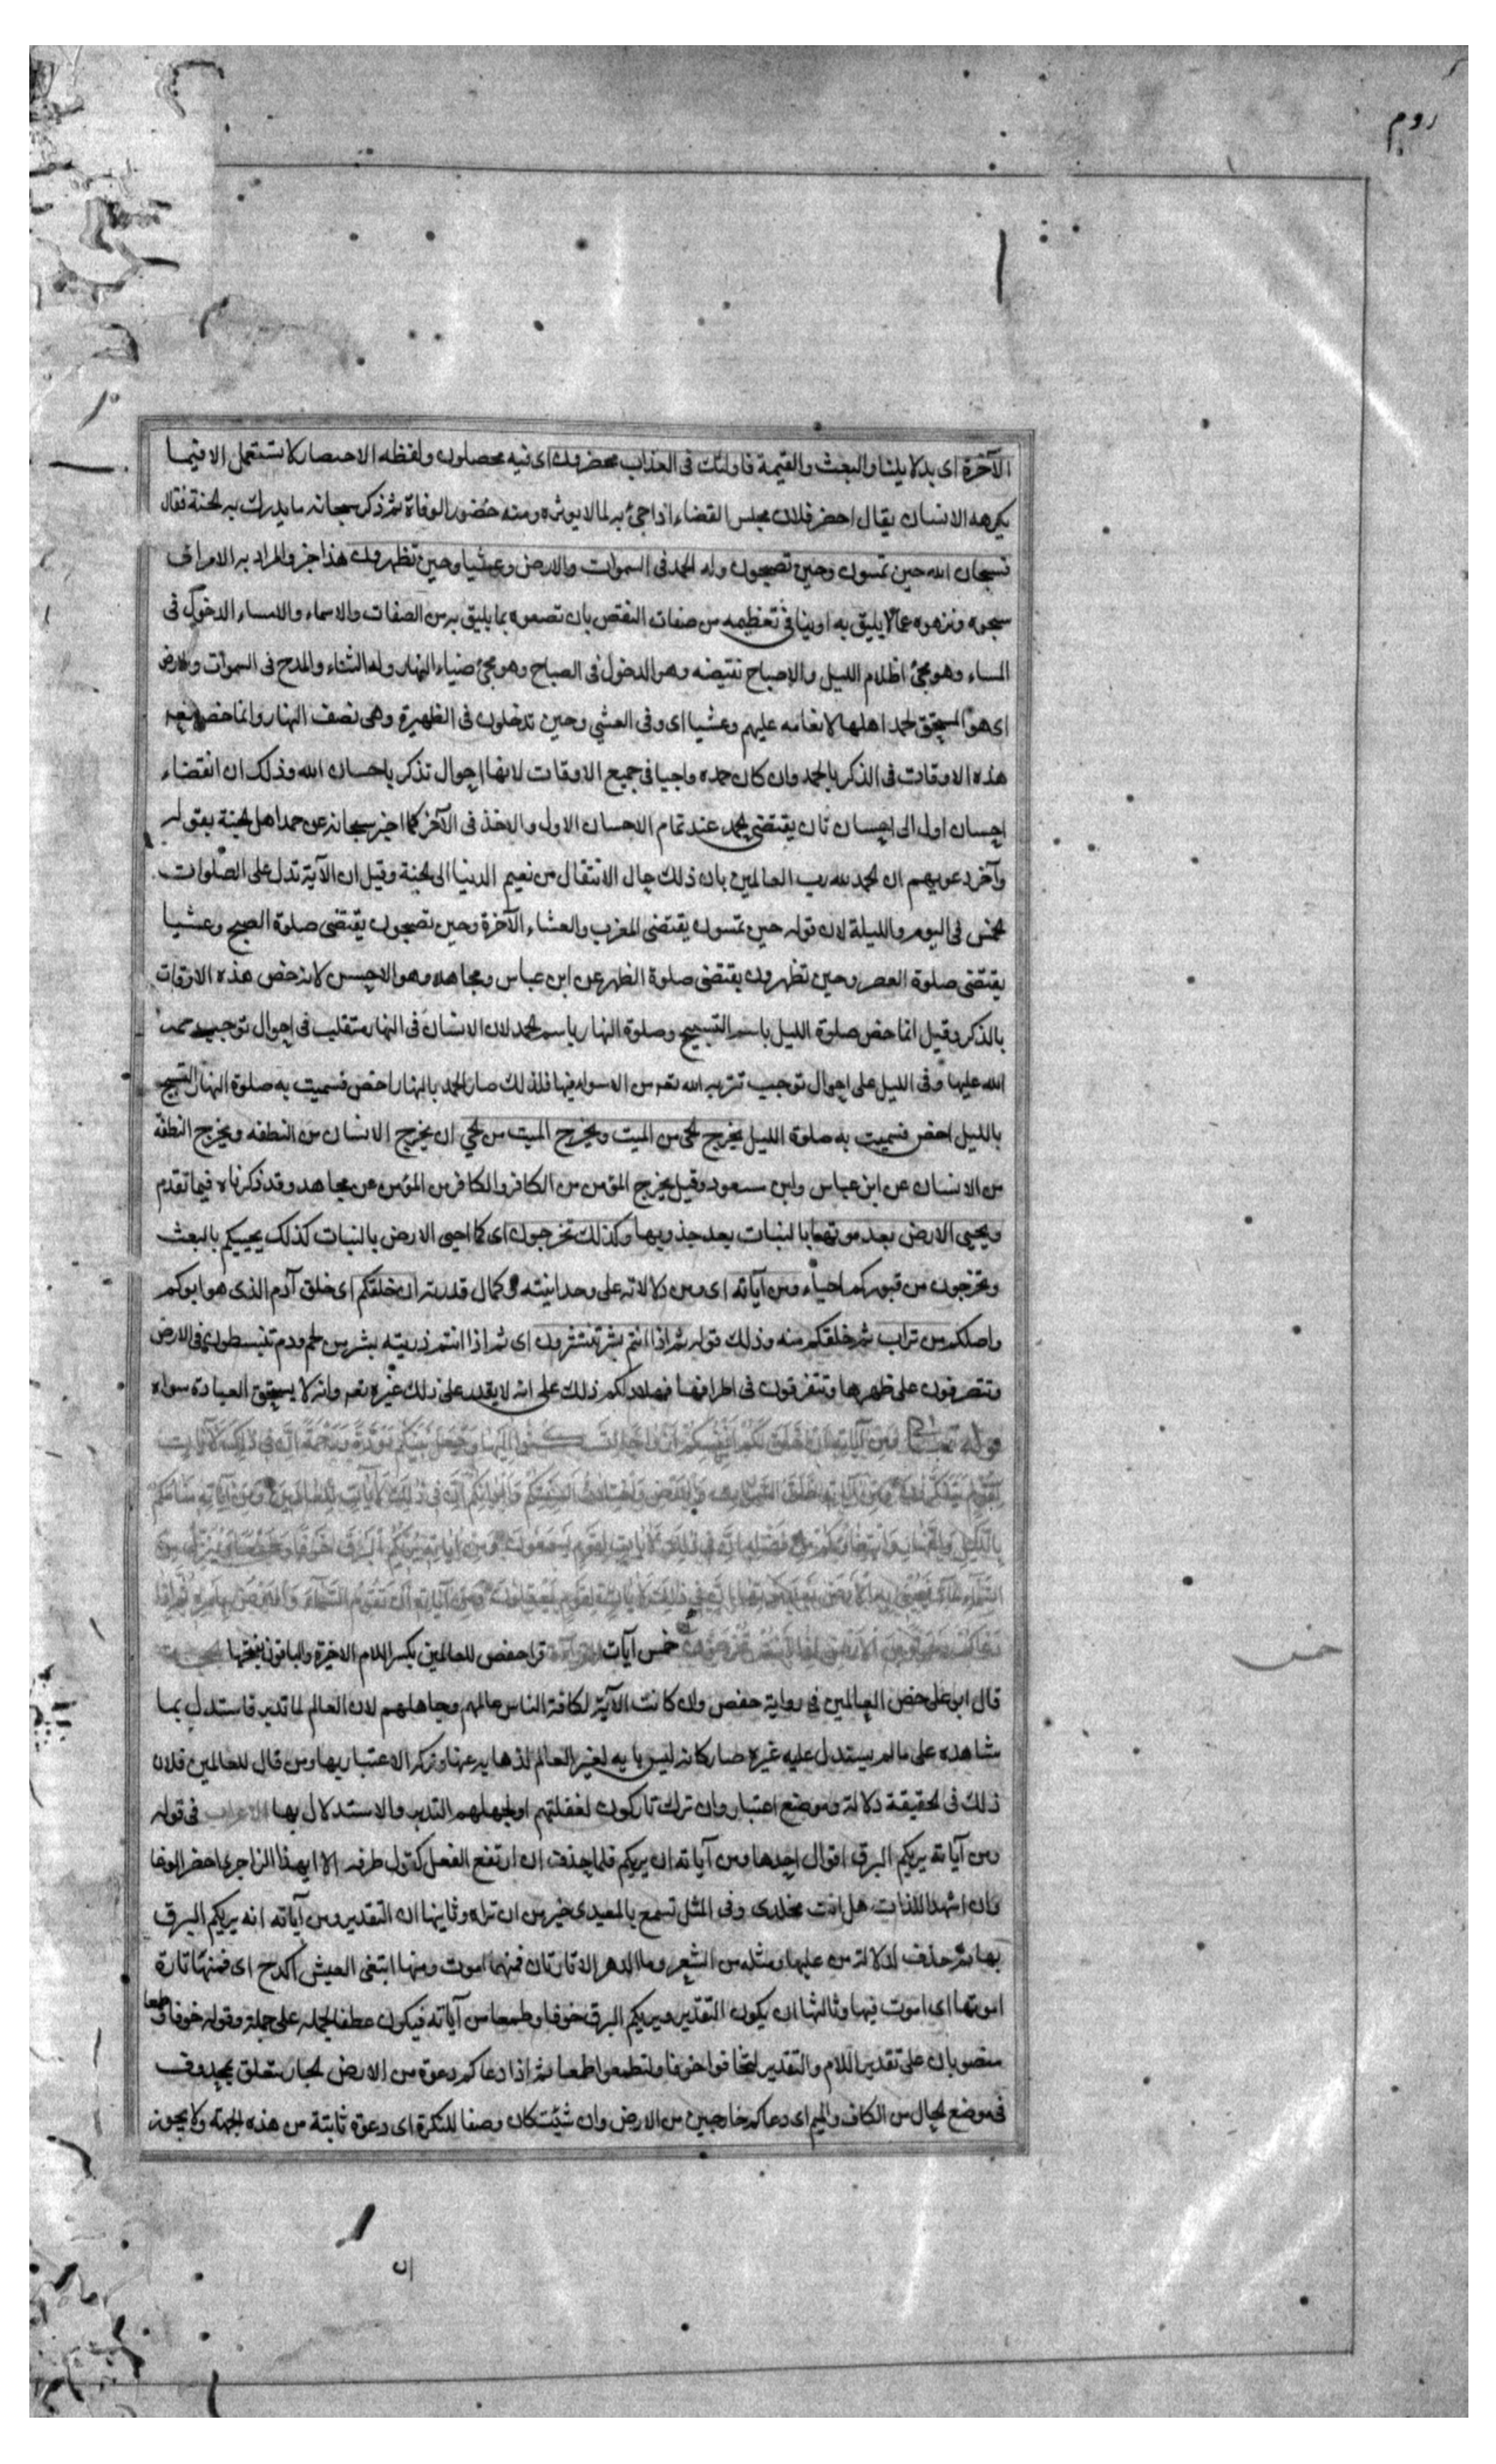 روم
الآخرة اى بدلايلنا والبعث والقيمة فاولئك فى العذاب محضرون اى فيه محصلون ولفظه الاحضار لا تستعمل الا فيما
يكرهه الانسان يقال احضر فلان مجلس القضاء اذا جئ به لما لا يوثره ومنه حضور الوفاة ثم ذكر سبحانه ما يدرك به الجنة فقال
فسبحان الله حين تمسون وحين تصبحون وله الحمد فى السموات والارض وعشيا وحين تظهرون هذا خبر والمراد به الامر اى
سبحوه ونزهوه عما لا يليق به او ينافى تعظيمه من صفات النقص بان تصفوه بما يليق به من الصفات والاسماء والامساء الدخول فى
المساء وهو مجئ اظلام الليل والاصباح نقيضه وهو الدخول فى الصباح وهو مجئ ضياء النهار وله الثناء والمدح فى السموات والارض
اى هو المستحق لحمد اهلها لانعامه عليهم وعشيا اى وفى العشي وحين تدخلون فى الظهيرة وهى نصف النهار وانما خص تعه
هذه الاوقات فى الذكر بالحمد وان كان حمده واجبا فى جميع الاوقات لانها احوال تذكر باحسان الله وذلك ان انقضاء
احسان اول الى احسان ثان يقتضى الحمد عند تمام الاحسان الاول والاخذ فى الآخر كما اخبر سبحانه عن حمد اهل الجنة بقوله
وآخر دعويهم ان الحمد لله رب العالمين بان ذلك حال الانتقال من نعيم الدنيا الى الجنة وقيل ان الآية تدل على الصلوات
الخمس فى اليوم والليلة لان قوله حين تمسون يقتضى المغرب والعشاء الآخرة وحين تصبحون يقتضى صلوة الصبح وعشيا
يقتضى صلوة العصر وحين تظهرون يقتضى صلوة الظهر عن ابن عباس ومجاهد وهو الاحسن لانه خص هذه الاوقات
بالذكر وقيل انما خص صلوة الليل باسم التسبيح وصلوة النهار باسم الحمد لان الانسان فى النهار متقلب فى احوال توجب حمد
الله عليها وفى الليل على احوال توجب تنزيه الله تعه من الاسواء فيها فلذلك صار الحمد بالنهار اخص فسميت به صلوة النهار والتسبيح
بالليل اخص فسميت به صلوة الليل يخرج الحى من الميت ويخرج الميت من الحي اى يخرج الانسان من النطفه ويخرج النطفة
من الانسان عن ابن عباس وابن مسعود وقيل يخرج المؤمن من الكافر والكافر من المؤمن عن مجاهد وقد ذكرناه فيما تقدم
ويحيى الارض بعد موتها بالنبات بعد جدوبها وكذلك تخرجون اى كما احيى الارض بالنبات كذلك يحييكم بالبعث
وتخرجون من قبوركم احياء ومن آياته اى ومن دلالاته على وحدانيته وكمال قدرته ان خلقكم اى خلق آدم الذى هو ابوكم
واصلكم من تراب ثم خلقكم منه وذلك قوله ثم اذا انتم بشر تنتشرون اى ثم اذا انتم ذريته بشر من لحم ودم تنبسطون فى الارض
وتتصرفون على ظهرها وتتفرقون فى اطرافها فهلا دلكم ذلك على انه لا يقدر على ذلك غيره تعه وانه لا يستحق العبادة سواه
قوله تعالى ومن آياته ان خلق لكم من انفسكم ازواجا لتسكنوا اليها وجعل بينكم مودة ورحمة ان فى ذلك لآيات
لقوم يتفكرون ومن آياته خلق السموات والارض واختلاف السنتكم والوانكم ان فى ذلك لآيات للعالمين ومن آياته منامكم
بالليل والنهار وابتغاؤكم من فضله ان فى ذلك لآيات لقوم يسمعون ومن آياته يريكم البرق خوفا وطمعا وينزل من
السماء ماء فيحيى به الارض بعد موتها ان فى ذلك لآيات لقوم يعقلون ومن آياته ان تقوم السماء والارض بامره ثم اذا
دعاكم دعوة من الارض اذا انتم تخرجون خمس آيات القراءة قرا حفص للعالمين بكسر اللام الاخيرة والباقون بفتحها الحجة
خمس
قال ابو على خص العالمين فى رواية حفص وان كانت الآية لكافة الناس عالمهم وجاهلهم لان العالم لما تدبر فاستدل بما
شاهده على ما لم يستدل عليه غيره صار كانه ليس باية لغير العالم لذهابه عنها وتركه الاعتبار بها ومن قال للعالمين فلان
ذلك فى الحقيقة دلالة وموضع اعتبار وان ترك تاركون لغفلتهم او لجهلهم التدبر والاستدلال بها الاعراب فى قوله
ومن آياته يريكم البرق اقوال احدها ومن آياته ان يريكم فلما حذف ان ارتفع الفعل كقول طرفه الا ايهذا الزاجرى احضر الوغا
وان اشهد اللذات هل انت مخلدى وفى المثل تسمع بالمعيدى خير من ان تراه وثانيها ان التقدير ومن آياته انه يريكم البرق
بها ثم حذف لدلالة من عليها ومثله من الشعر وما الدهر الا تارتان فمنهما اموت ومنها ابتغى العيش اكدح اى فمنها تارة
اموتها اى اموت فيها وثالثها ان يكون التقدير ويريكم البرق خوفا وطمعا من آياته فيكون عطفا لجملة على جملة وقوله خوفا وطمعا
منصوبان على تقدير اللام والتقدير لتخافوا خوفا ولتطمعوا طمعا ثم اذا دعاكم دعوة من الارض الجار متعلق بمحذوف
فى موضع الحال من الكاف والميم اى دعاكم خارجين من الارض وان شئت كان وصفا للنكرة اى دعوة ثابتة من هذه الجهة ولا يجوز
ان